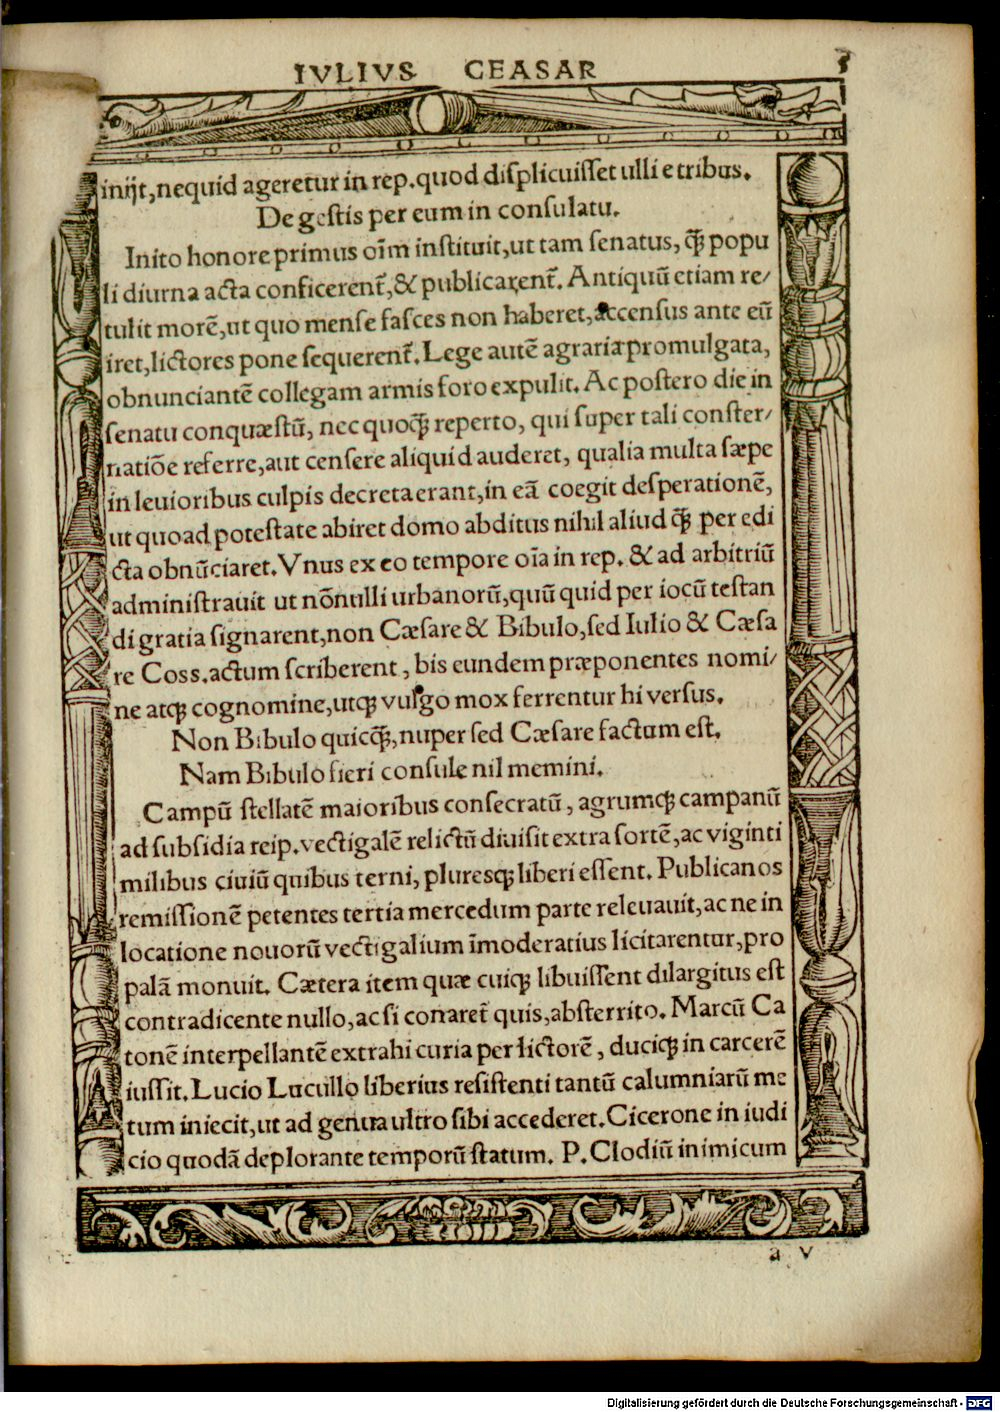 IVLIVS CEASAR 5
inijt, nequid ageretur in rep. quod displicuisset ulli e tribus.
De gestis per eum in consulatu.
Inito honore primus oĩm instituit, ut tam senatus, q̃ȝ popu
li diurna acta conficerent̃, & publicarent̃. Antiquũ etiam re/
tulit morẽ, ut quo mense fasces non haberet, accensus ante eũ
iret, lictores pone sequerent̃. Lege autẽ agraria promulgata,
obnunciantẽ collegam armis foro expulit. Ac postero die in
senatu conquæstũ, nec quoq̃ȝ reperto, qui super tali conster/
natiõe referre, aut censere aliquid auderet, qualia multa sæpe
in leuioribus culpis decreta erant, in eã coegit desperationẽ,
ut quoad potestate abiret domo abditus nihil aliud q̃ȝ per edi
cta obnũciaret. Vnus ex eo tempore oĩa in rep. & ad arbitriũ
administrauit ut nõnulli urbanorũ, quũ quid per iocũ testan
di gratia signarent, non Cæsare & Bibulo, sed Iulio & Cæsa
re Coss. actum scriberent, bis eundem præponentes nomi/
ne atqȝ cognomine, utqȝ vulgo mox ferrentur hi versus.
Non Bibulo quicq̃ȝ, nuper sed Cæsare factum est.
Nam Bibulo fieri consule nil memini.
Campũ stellatẽ maioribus consecratũ, agrumqȝ campanũ
ad subsidia reip. vectigalẽ relictũ diuisit extra sortẽ, ac viginti
milibus ciuiũ quibus terni, pluresqȝ liberi essent. Publicanos
remissionẽ petentes tertia mercedum parte releuauit, ac ne in
locatione nouorũ vectigalium ĩmoderatius licitarentur, pro
palã monuit. Cætera item quæ cuiqȝ libuissent dilargitus est
contradicente nullo, ac si conaret̃ quis, absterrito. Marcũ Ca
tonẽ interpellantẽ extrahi curia per lictorẽ, duciqȝ in carcerẽ
iussit. Lucio Lucullo liberius resistenti tantũ calumniarũ me
tum iniecit, ut ad genua ultro sibi accederet. Cicerone in iudi
cio quodã deplorante temporũ statum. P. Clodiũ inimicum
a v
Digitalisierung gefördert durch die Deutsche Forschungsgemeinschaft - DFG